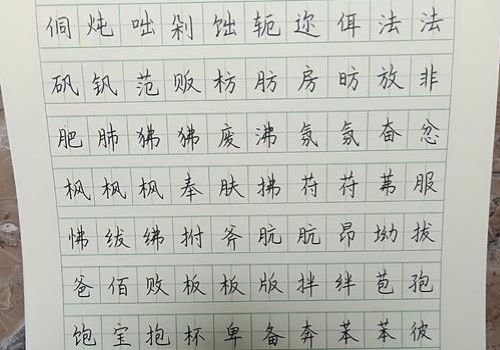 侗 炖 咄 剁 饳 轭 迩 佴 法 法
矾 钒 范 贩 枋 肪 房 昉 放 非
肥 肺 狒 狒 废 沸 氛 氛 奋 忿
枫 枫 枫 奉 肤 拂 苻 苻 茀 服
怫 绂 绋 拊 斧 肮 肮 昂 坳 拔
爸 佰 败 板 板 版 拌 绊 苞 孢
饱 宝 抱 杯 卑 备 奔 苯 苯 彼